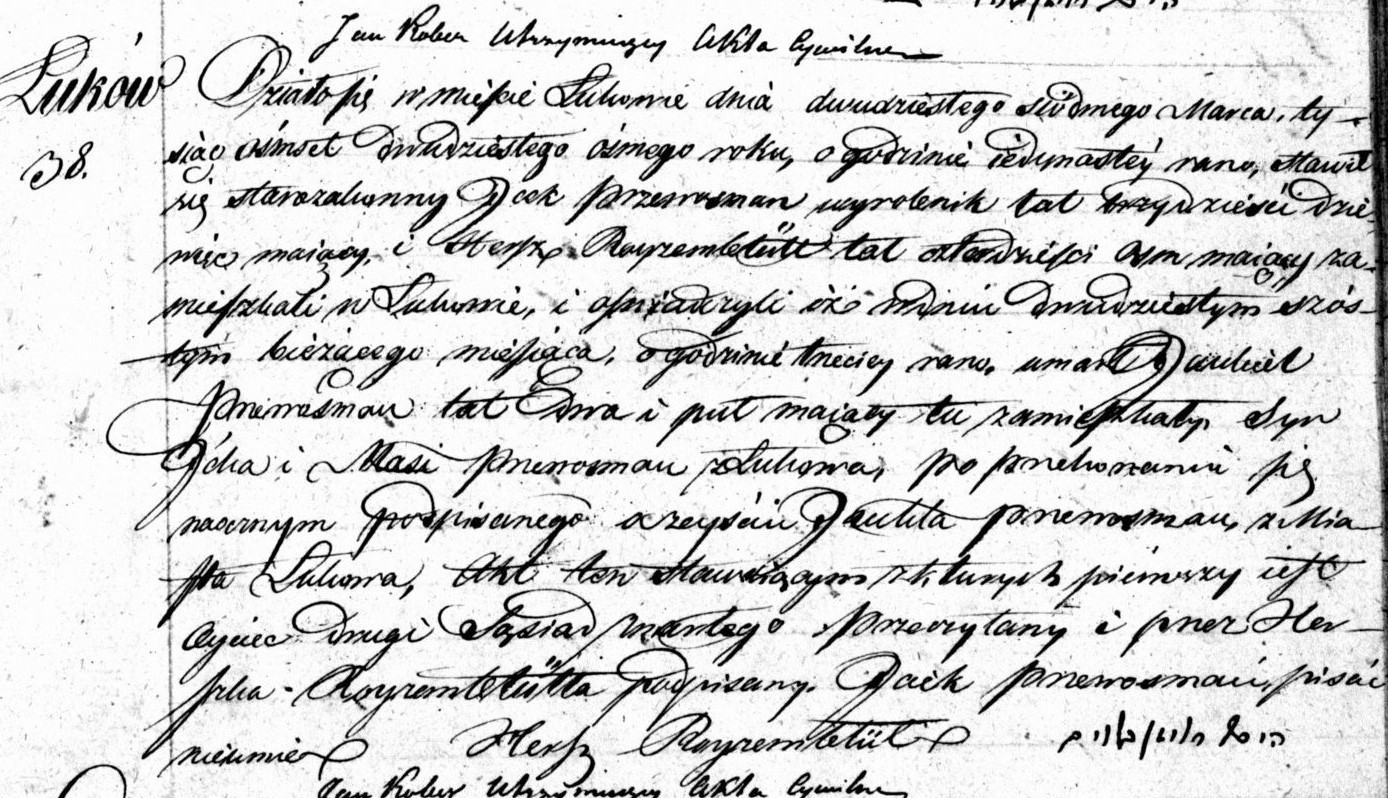 Jan Kober Utrzymuiący Akta Cywilne
Łuków
38.
Działo się w mieście Łukowie dnia dwudziestego siódmego Marca, ty-
siąc ośmset dwudziestego ósmego roku, o godzinie iedynastey rano, stawił
się starozakonny Icek Przewosman wyrobnik lat trzydzieści dzie-
więć maiący, i Hersz Rozremblütt lat czterdzieści osm maiący za-
mieszkali w Łukowie, i oświadczyli iż w dniu dwudziestym szós-
tym bieżącego miesiąca, o godzinie trzeciey rano, umarł Jankiel
Przewosman lat Dwa i puł maiący tu zamieszkały, Syn
Icka i Masi Przewosman z Łukowa, po przekonaniu się
naocznym podpisanego o zeyściu Jankla Przewosman, z Mia-
sta Łukowa, Akt ten stawaiącym z których pierwszy iest
Oyciec drugi Sąsiad zmarłego Przeczytany i przez Her-
szka Rozremblütta podpisany. Icek Przewosman, pisać
nieumie Hersz Rozremblütt
Jan Kober Utrzymuiący Akta Cywilne